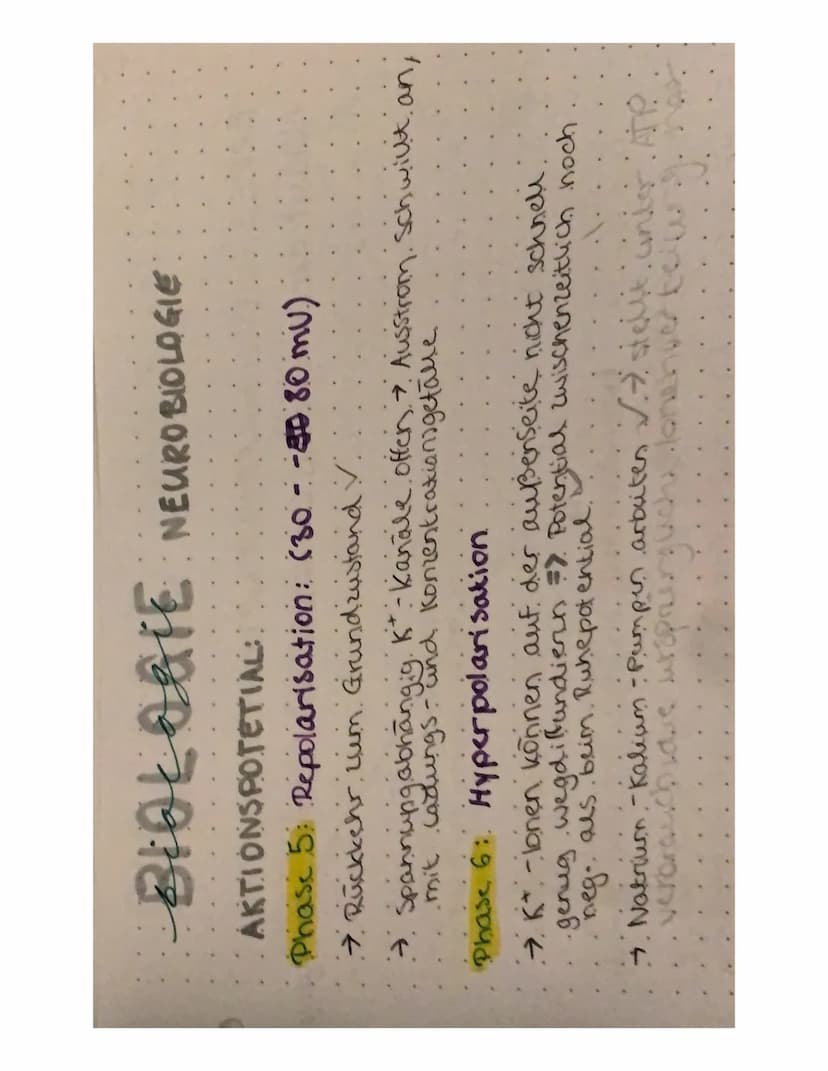 BIOLOGIE
biologie
NEUROBIOLOGIE
AKTIONSPOTETIAL:
Phase 5: Repolarisation: (30 - -80 mV)
→ Rückkehr zum Grundzustand ✓
→ Spannungabhängig K⁺-Kanäle offen → Ausstrom schwillt an,
mit Ladungs- und Konzentrationsgefälle
Phase 6: Hyperpolarisation
→ K⁺-Ionen können auf der außenseite nicht schnell
genug wegdiffundiern => Potential zwischenzeitlich noch
neg. als beim Ruhepotential
→ Natrium-Kalium-Pumpen arbeiten ✓ → stellt unter ATP
verbrauch die ursprüngliche Ionenverteilung her